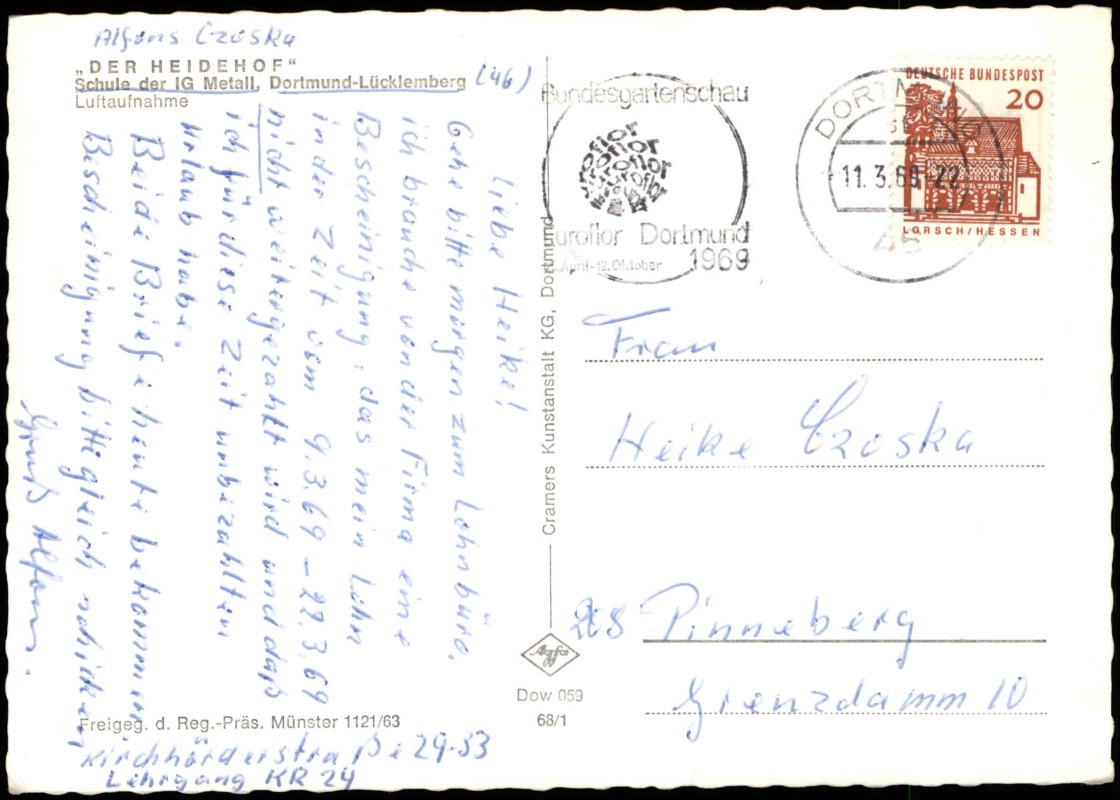 Alfons Czoska
„DER HEIDEHOF“
Schule der IG Metall, Dortmund-Lücklemberg (46)
Luftaufnahme
Liebe Heike!
Gehe bitte morgen zum Lohnbüro,
ich brauche von der Firma eine
Bescheinigung, das mein Lohn
in der Zeit vom 9.3.69 – 22.3.69
nicht weitergezahlt wird und daß
ich für diese Zeit unbezahlten
Urlaub habe.
Beide Briefe heute bekommen
Bescheinigung bitte gleich schicken
Gruß Alfons.
Freigeg. d. Reg.-Präs. Münster 1121/63
Kirchhörderstraße 29-53
Lehrgang KR 24
Cramers Kunstanstalt KG, Dortmund
Agfa
Dow 059
68/1
Bundesgartenschau
euroflor
euroflor
euroflor
euroflor
euroflor Dortmund
April-12.Oktober 1969
DORTMUND
11.3.69-22
46
DEUTSCHE BUNDESPOST
20
LORSCH/HESSEN
Frau
Heike Czoska
208 Pinneberg
Grenzdamm 10